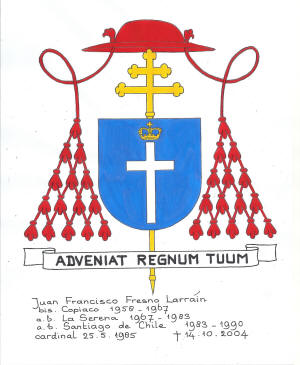 ADVENIAT REGNUM TUUM
Juan Francisco Fresno Larraín
bis. Copiaco 1958 - 1967
a.b. La Serena 1967 - 1983
a.b. Santiago de Chile 1983 - 1990
cardinal 25.5.1985 † 14.10.2004